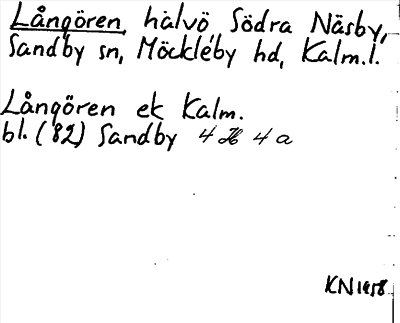 Långören, halvö Södra Näsby,
Sandby sn, Möckleby hd, Kalm.l.
Långören ek Kalm.
bl. (82) Sandby 4 H 4 a
KN 1958